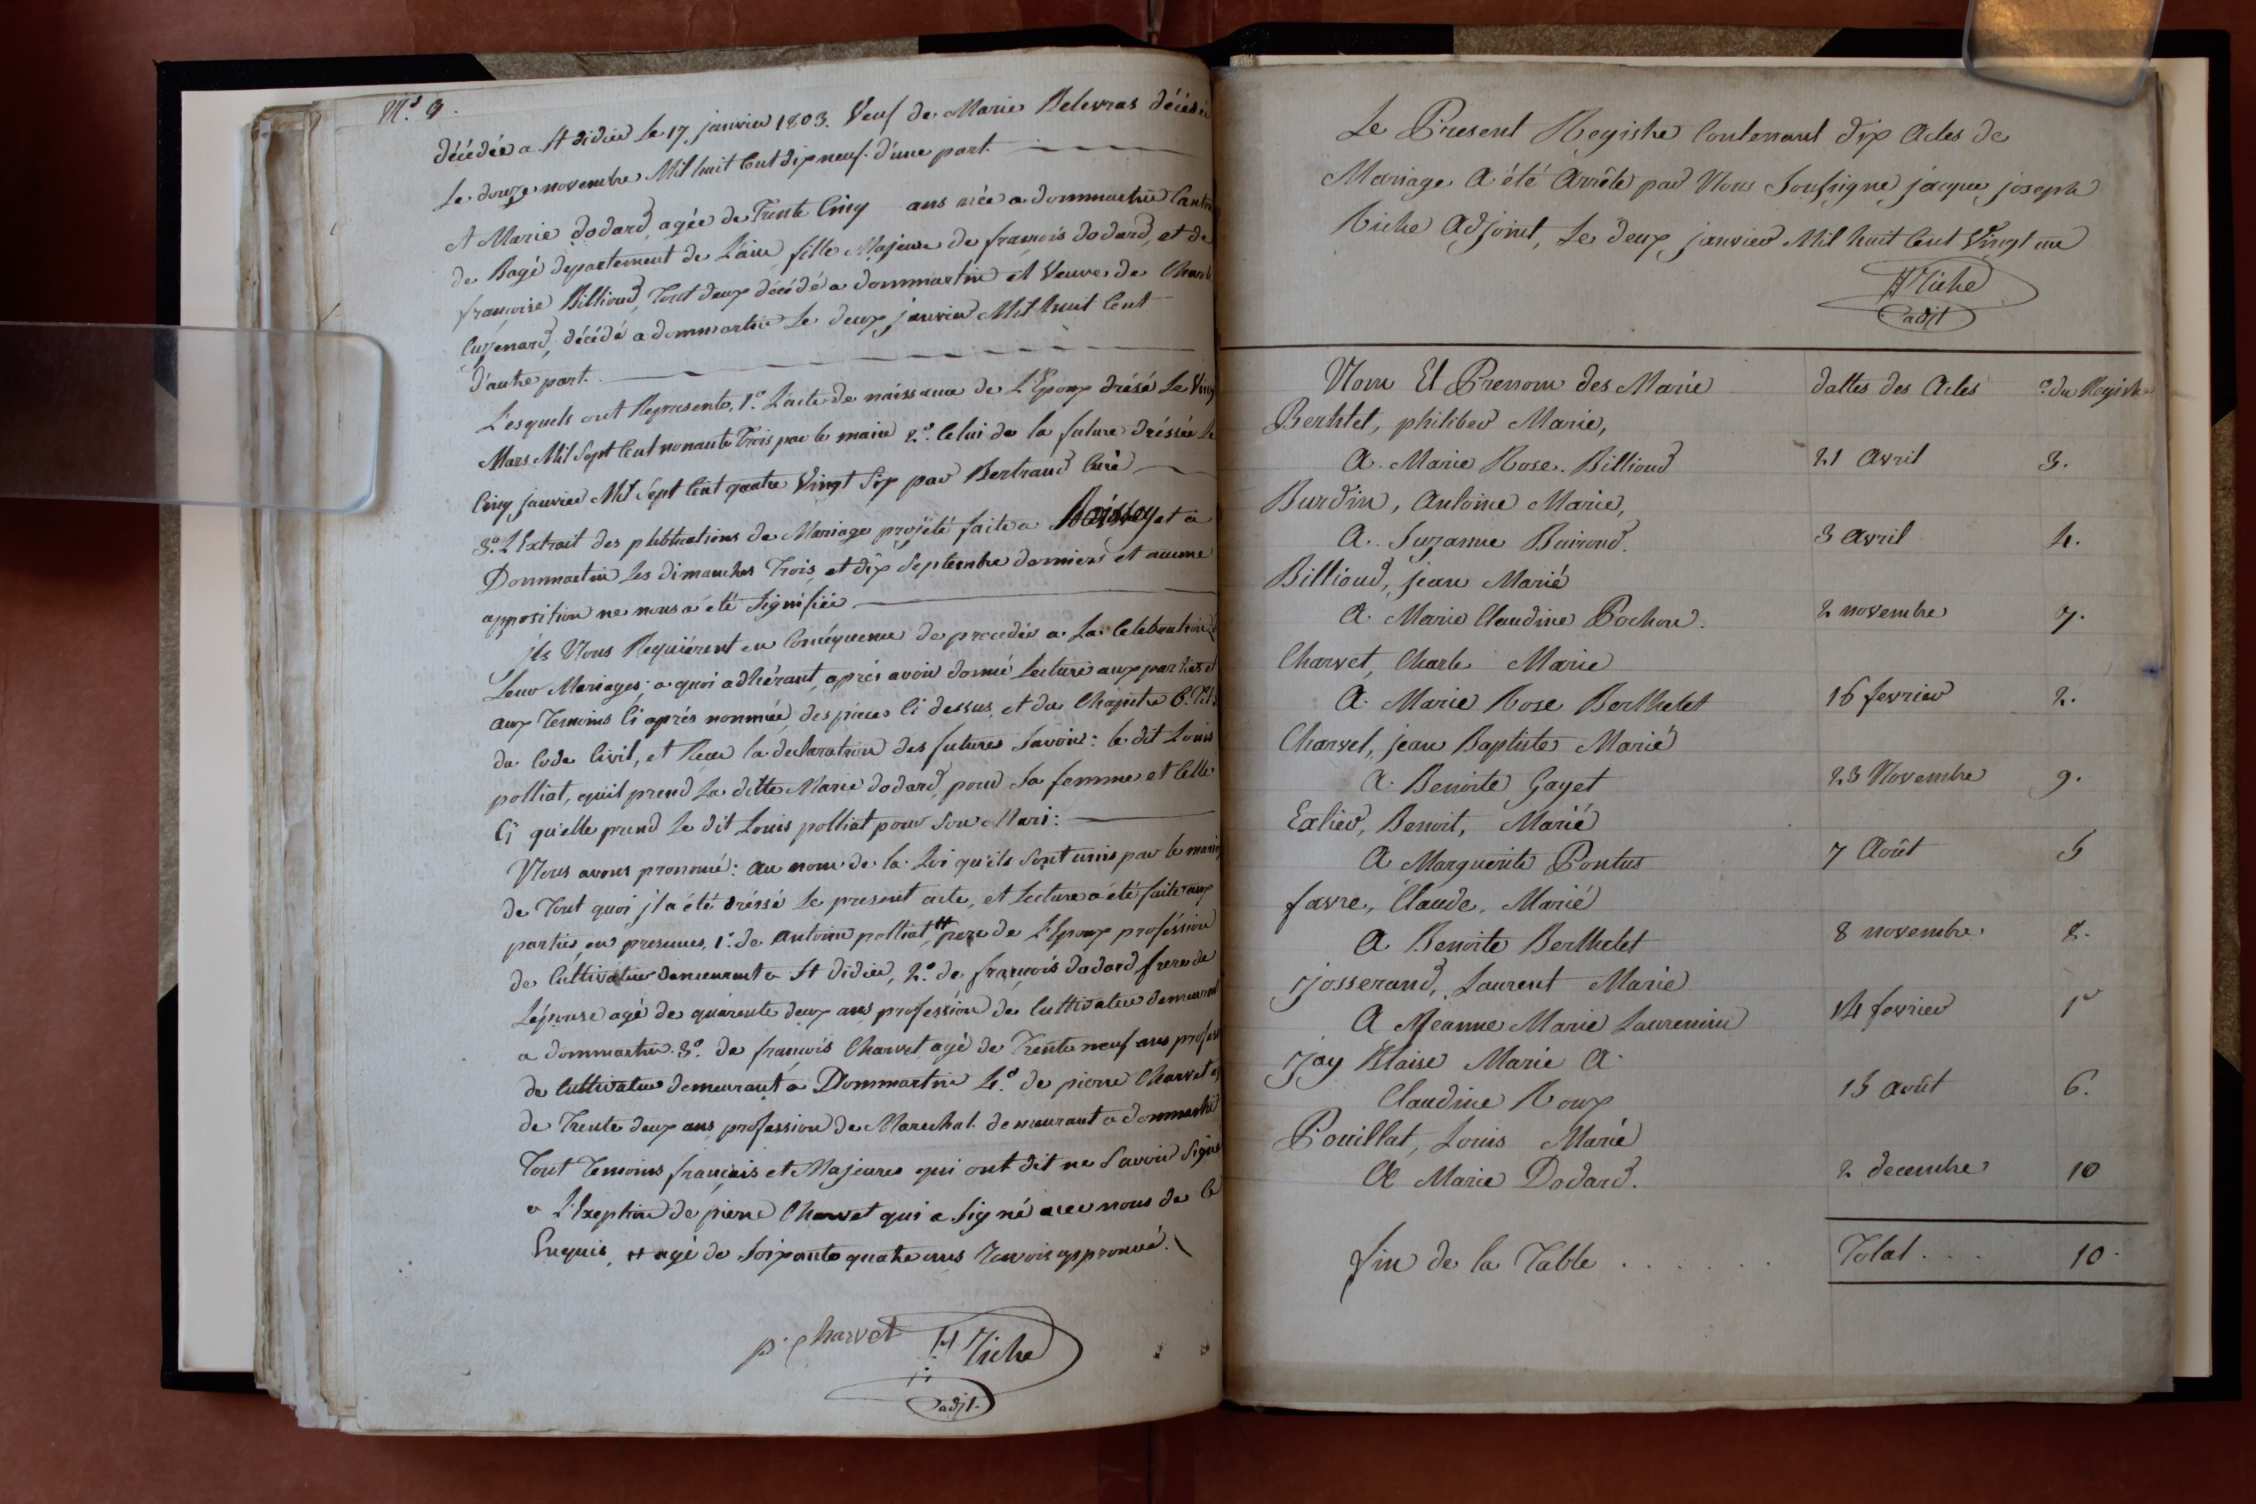 M.d 9.
décédée a St didier Le 17 janvier 1803. Veuf de Marie Belevras décédée
Le douze novembre Mil huit Cent dix neuf. d'une part.
et Marie dodard, agée de Trente Cinq ans née a dommartin Canton
de Bagé departement de L'ain, fille Majeure de françois dodard, et de
françoise Billioud, Tout deux décédé a dommartin et Veuve de Charle
décédé a dommartin Le deux janvier Mil huit Cent
d'autre part.
Lesquels ont Représenté, 1.º L'acte de naissance de L'Epoux drésé Le Vingt
Mars Mil Sept Cent nonante Trois par le maire 2.º Celui de la future dréssée le
Cinq janvier Mil Sept Cent quatre Vingt Six par Bertrand Curé
3.º L'Extrait des publications de Mariage projeté faite a Boissey et a
Dommartin Les dimanches Trois et dix Septembre derniers et aucune
opposition ne nous a été Signifiée
jls Nous Requiérent en Conséquence de procedér a La Celebration de
Leur Mariages; a quoi adhérant, aprés avoir donné Lecture aux parties et
aux Temoins Ci aprés nommée, des pieces Ci dessus, et du Chapitre 6.
du Code Civil, et Recu la declaration des futures Savoir: le dit Louis
polliat, quil prend La ditte Marie dodard, pour Sa femme et Celle
Ci quelle prend Le dit Louis polliat pour Son Mari:
Nous avons prononcé: au nom de la Loi qu'ils Sont unis par le mariage
de Tout quoi j'l a été dréssé Le present acte, et Lecture a été faite aux
parties, en presences, 1.º de antoine polliat # pere de L'Epoux proféssion
de Cultivateur demeurant a St didier, 2.º de françois dodard frere de
L'épouse agé de quarente deux ans proféssion de Cultivateur demeurant
a dommartin 3.º de françois Charvet agé de Trente neuf ans profession
de Cultivateur demeurant a Dommartin 4.º de pierre Charvet agé
de Trente deux ans profession de Marechal demeurant a dommartin
Tout Temoins français et Majeures qui ont dit ne Savoir Signé
a L'Exeption de pierre Charvet qui a Signé avec nous de Ce
Enquis, # agé de Soixante quatre ans Renvois approuvé.
p. Charvet Riche
adjt.
Le Present Registre Contenant dix Actes de
Mariage A été Arrêté par Nous Soussigné jacque joseph
Riche Adjoint, Le deux janvier Mil huit Cent Vingt un
Riche
adjt
Nom Et Prenom des Marié dattes des Actes º du Registre
Berthlet, philiber Marie,
A. Marie Rose. Billioud 21 Avril 3.
Burdin, Antoine Marie,
A. Suzanne Boiroud. 3 Avril 4.
Billioud, jean Marié
A. Marie Claudine Pochon. 2 novembre 7.
Charvet, Charle Marie
A. Marie Rose Berthelet 16 fevrier 2.
Charvet, jean Baptiste Marié
A. Benoite Gayet 23 Novembre 9.
Benoit, Marié
A Marguerite Pontus 7 Août 5
favre, Claude, Marié
A Benoite Berthelet 8 novembre. 8.
josserand, Laurent Marié
A Jeanne Marie Laurencin 14 fevrier 1er
jay Blaise Marie A.
Claudine Roux 15 août 6.
Pouillat, Louis Marié
A Marie Dodard. 2 decembre 10
fin de la Table . . . . . . Total . . . 10.